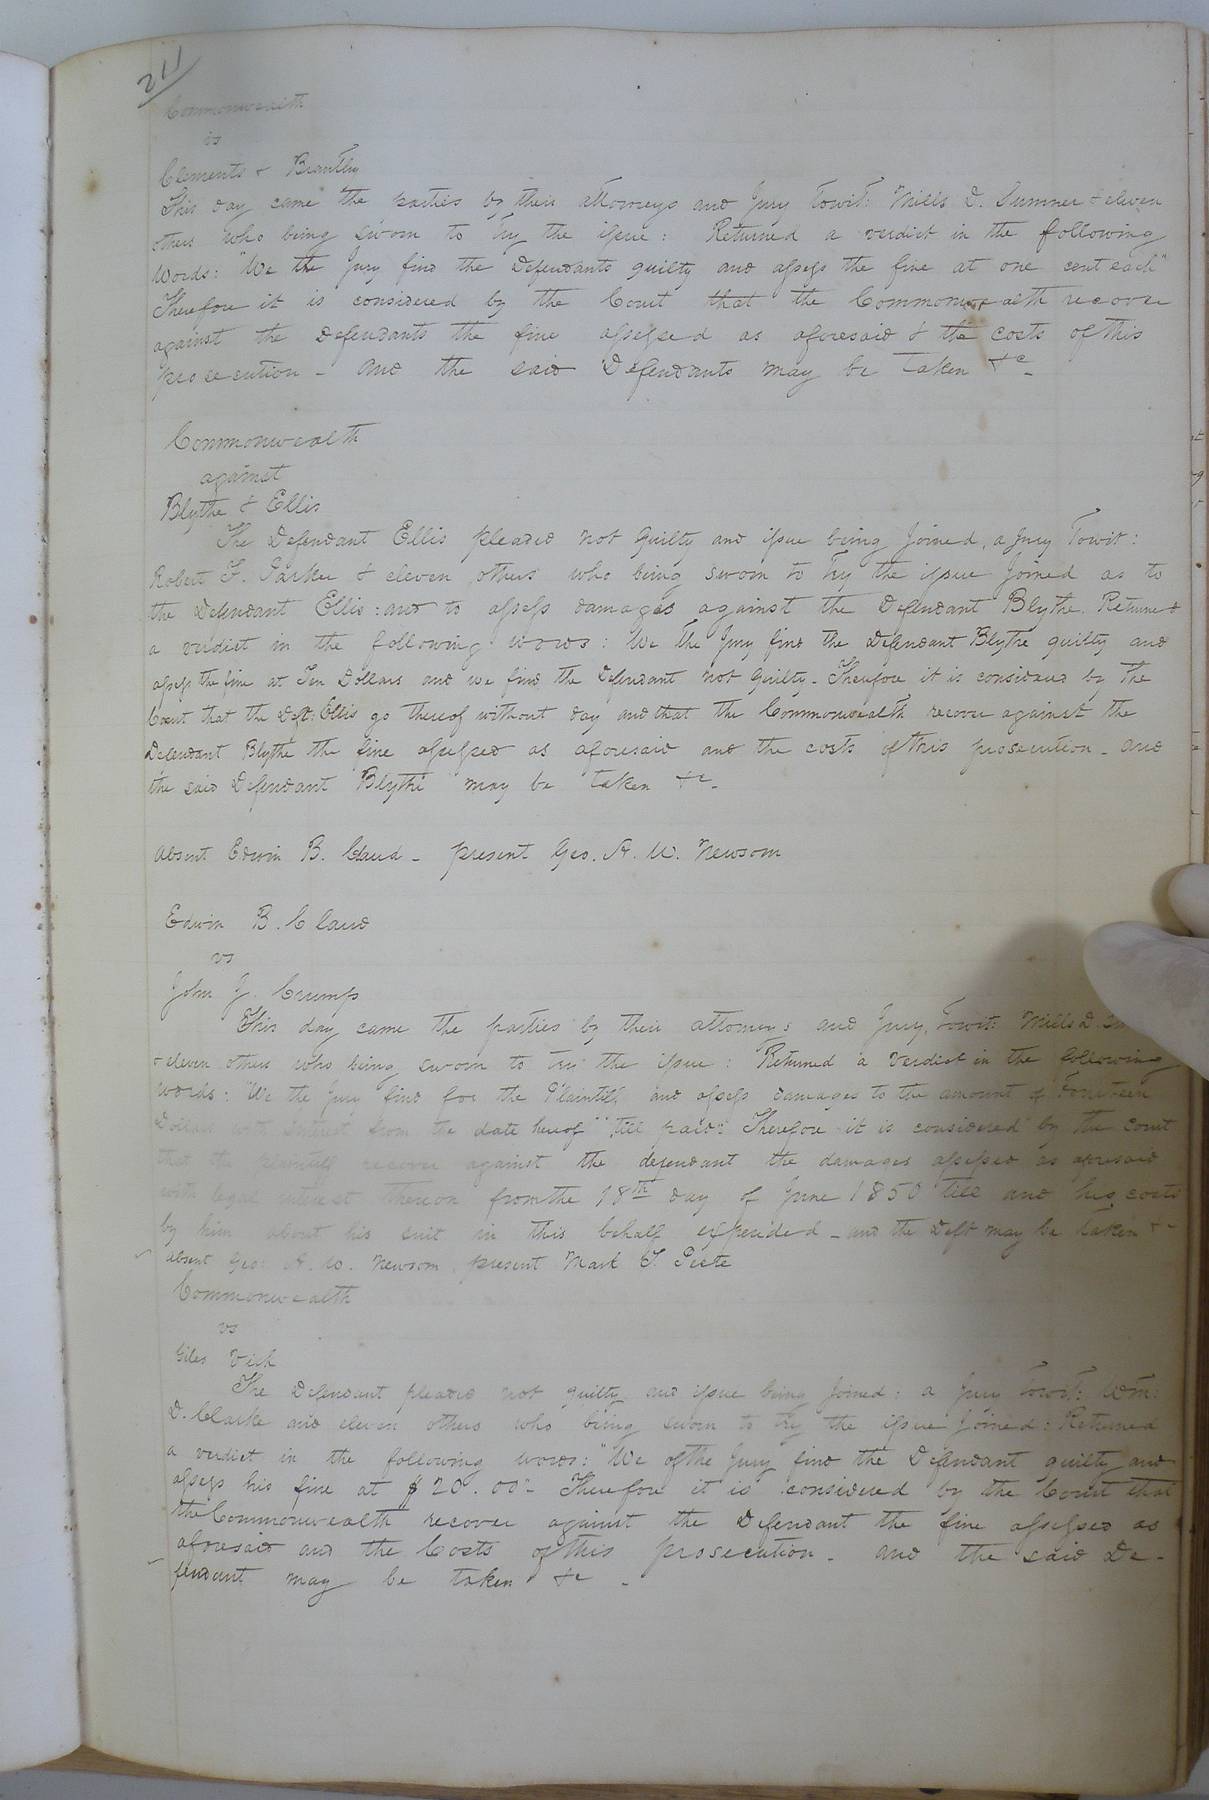 211
Commonwealth
vs
Clements & Brantley
This day came the parties by their attorneys and Jury Towit: Mills D. Sumner & eleven
others who being sworn to try the issue: Returned a verdict in the following
Words: "We the Jury find the Defendants guilty and assess the fine at one cent each"
Therefore it is considered by the Court that the Commonwealth recover
against the Defendants the fine assessed as aforesaid & the costs of this
prosecution - And the said Defendants may be taken &c -
Commonwealth
against
Blythe & Ellis
The Defendant Ellis pleaded not guilty and issue being Joined, a Jury Towit:
Robert F. Parker & eleven others who being sworn to try the issue Joined as to
the Defendant Ellis: and to assess damages against the Defendant Blythe. Returned
a verdict in the following words: We the Jury find the Defendant Blythe guilty and
assess the fine at Ten Dollars and we find the Defendant not Guilty - Therefore it is considered by the
Court that the Deft: Ellis go thereof without day and that the Commonwealth recover against the
Defendant Blythe the fine assessed as aforesaid and the costs of this prosecution - and
the said Defendant Blythe may be taken &c -
Absent Edwin B. Claud - present Geo. A. W. Newsom
Edwin B. Claud
vs
John J. Crumps
This day came the parties by their attorneys and Jury, Towit: Mills D.
& eleven others who being sworn to try the issue: Returned a verdict in the following
words: "We the Jury find for the Plaintiff and assess damages to the amount of Fourteen
Dollars with interest from the date hereof" "till paid": Therefore it is considered by the Court
that the plaintiff recover against the defendant the damages assessed as aforesaid
with legal interest thereon from the 18th day of June 1850 till and his costs
by him about his suit in this behalf expended - and the Deft may be taken &c
absent Geo: A. W. Newsom present Mark T. Peete
Commonwealth
vs
Giles Vick
The Defendant pleaded not guilty and issue being Joined: a Jury Towit: Wm:
D. Clarke and eleven others who being sworn to try the issue Joined: Returned
a verdict in the following words: "We of the Jury find the Defendant guilty and
assess his fine at $20.00" - Therefore it is considered by the Court that
the Commonwealth recover against the Defendant the fine assessed as
aforesaid and the Costs of this prosecution - and the said De-
fendant may be taken &c -